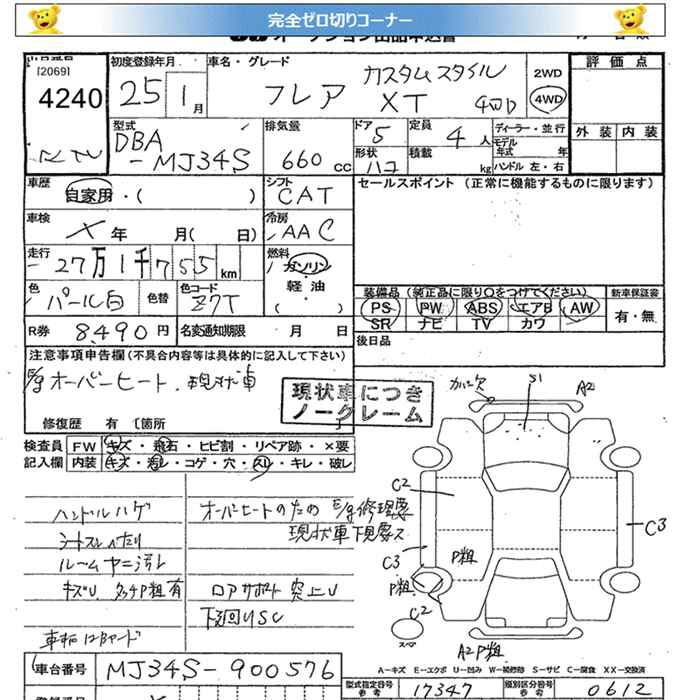 完全ゼロ切りコーナー
オークション出品申込書
[2069]
4240
初度登録年月 25年 1月
車名・グレード フレア カスタムスタイル XT 4WD
2WD
4WD
評価点
外装 内装
型式 DBA-MJ34S
排気量 660 cc
ドア 5 形状 ハコ
定員 4人 積載 kg
ディーラー・並行
モデル年式 年
ハンドル 左・右
車歴 自家用・( )
シフト CAT
セールスポイント (正常に機能するものに限ります)
車検 × 年 月( 日)
冷房 AAC
走行 27万1千755km
燃料 ガソリン 軽油 ( )
色 パール白 色替 色コード Z7T
装備品(純正品に限り○をつけてください) 新車保証書
PS PW ABS エアB AW 有・無
SR ナビ TV カワ
R券 8,490円 名変通知期限 月 日
後日品
注意事項申告欄(不具合内容等は具体的に記入して下さい)
E/g オーバーヒート.現状車
現状車につき
ノークレーム
修復歴 有 〔箇所 〕
検査員 FW キズ・飛石・ヒビ割・リペア跡・×要
記入欄 内装 キズ・汚レ・コゲ・穴・スレ・キレ・破レ
ハンドルハゲ
シートスレ ヘタリ
ルームヤニ汚レ
キズU タッチP粗有
オーバーヒートのため E/g修理要
現状車下見要ス
ロアサポート突上U
下廻りSC
車台番号 MJ34S-900576
カバー欠
S1
A2
C2
C3
C3
P粗
P粗
C2
スペア
A2 P粗
A-キズ E-エクボ U-凹み W-補修跡 S-サビ C-腐食 XX-交換済
型式指定番号 参考 17347 類別区分番号 参考 0612